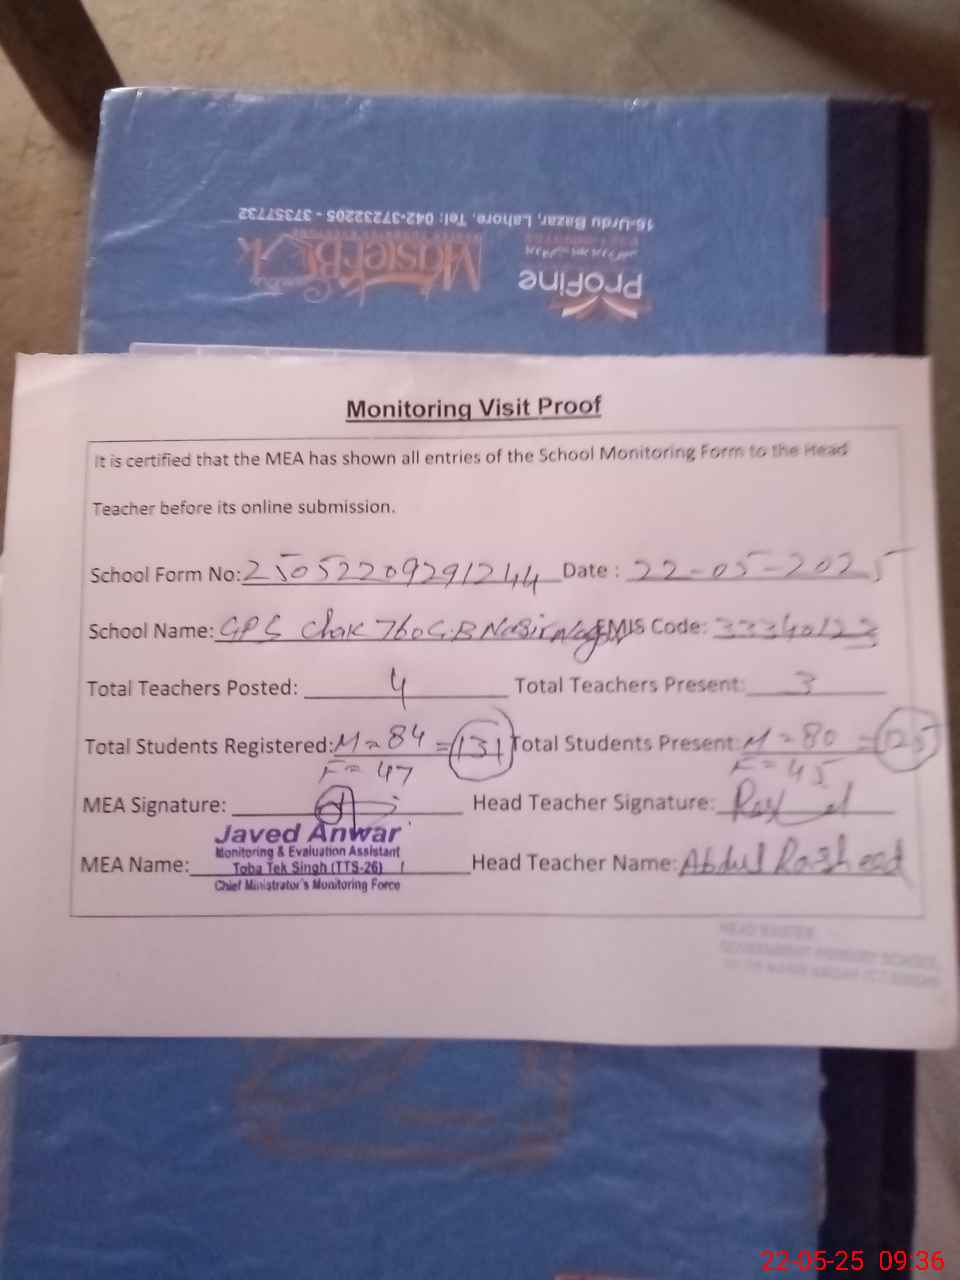 16-Urdu Bazar, Lahore. Tel: 042-37232205 - 37357732
MasterBook
ProFine
Monitoring Visit Proof
It is certified that the MEA has shown all entries of the School Monitoring Form to the Head
Teacher before its online submission.
School Form No: 25052209291244 Date : 22-05-2025
School Name: GPS Chak 760 G.B Nasir Nagar EMIS Code: 33340123
Total Teachers Posted: 4 Total Teachers Present: 3
Total Students Registered: M = 84 = 131 Total Students Present: M = 80 = 125
F = 47 F = 45
MEA Signature: Head Teacher Signature:
Javed Anwar
Monitoring & Evaluation Assistant
MEA Name: Toba Tek Singh (TTS-26) Head Teacher Name: Abdul Rasheed
Chief Ministrator's Monitoring Force
HEAD MASTER
GOVERNMENT PRIMARY SCHOOL
22-05-25 09:36